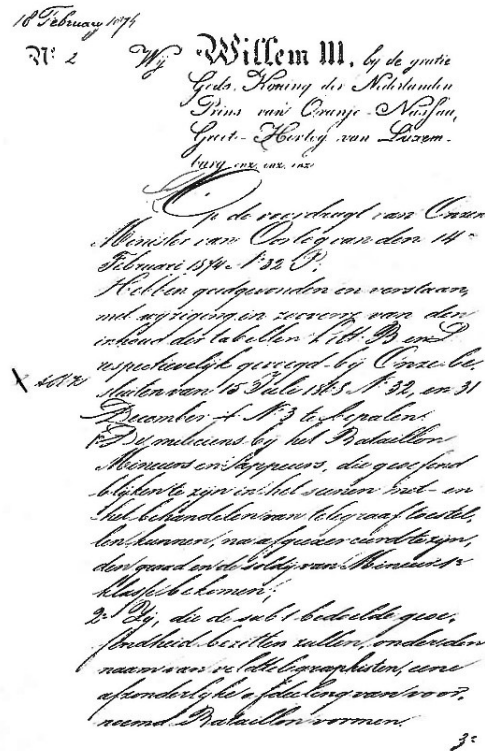 18 February 1874
N° 2 Wij Willem III, by de gratie
Gods, Koning der Nederlanden
Prins van Oranje-Nassau,
Groot-Hertog van Luxem-
burg enz. enz. enz.
Op de voordragt van Onzen
Minister van Oorlog van den 14e
Februari 1874 N° 32 P.
Hebben goedgevonden en verstaan,
met wyziging in zooverre van den
inhoud der tabellen Litt B en
respectievelijk gevoegd by Onze be-
sluiten van 15 Juli 1843 N° 32, en 31
December N° 3 te bepalen:
1e De miliciens by het Bataillon
Mineurs en Sappeurs, die geoefend
blyken te zyn in het seinen met- en
het behandelen van telegraaf toestel-
len kunnen, na afgeëxerceerd te zyn,
den graad en de soldy van Mineur 1e
klasse bekomen;
2e Zy, die de sub 1 bedoelde geoe-
fendheid bezitten zullen, onder den
naam van veldtelegraphisten, eene
afzonderlyke afdeeling van voor-
noemd Bataillon vormen.
3e